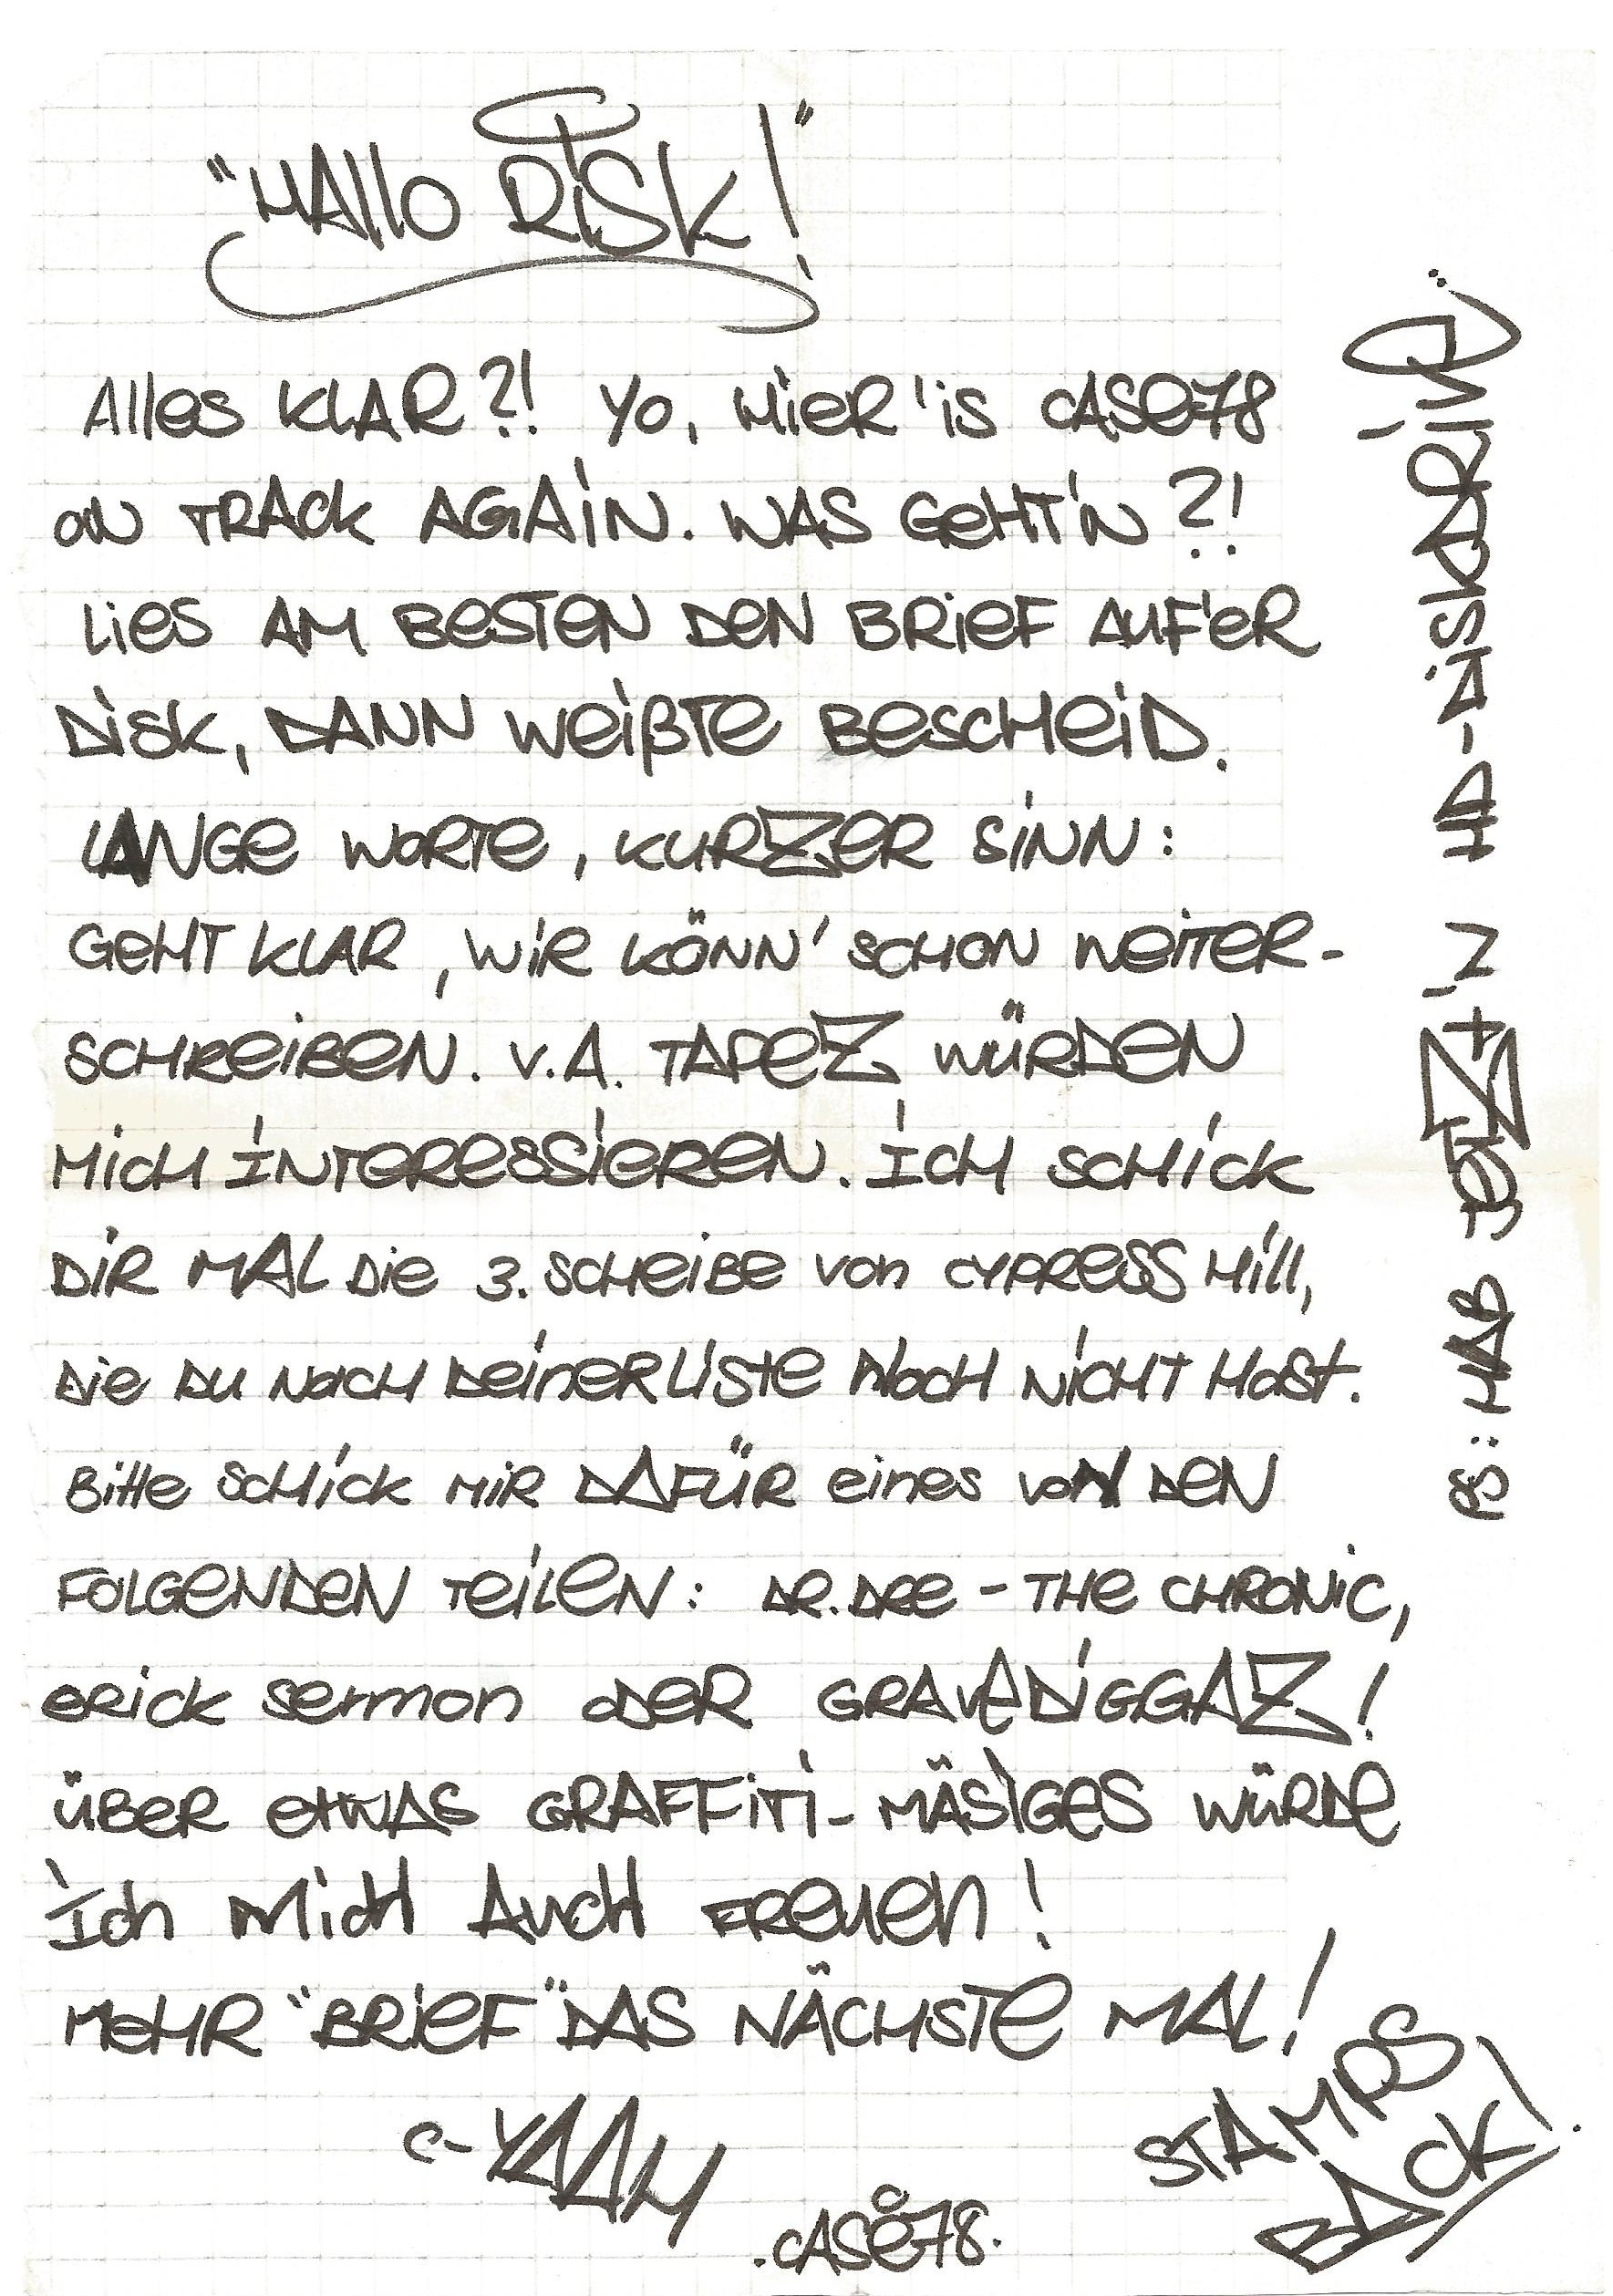 "HAllo RiSk!"
Alles KLAR?! Yo, HieR 'is CASe78
ON TRACk AGAiN. WAS GeHT'N?!
Lies AM BeSTeN DeN BRieF AUF'eR
DiSk, DANN WeißTe BeSCHeiD.
LANGe WorTe, KURZeR SiNN:
GeHT KLAR, WiR KÖNN' SCHON WeiTeR-
SCHReiBeN. V.A. TAPeZ WÜRDeN
MiCH INTeReSSieReN. ICH SCHiCK
DiR MAL Die 3. SCHeiBe Von CYPReSS Hill,
Die DU NaCH DeineR Liste NoCH NiCHT HaSt.
Bitte SCHiCK MiR DAFÜR eines VoN DeN
FOLGeNDeN TeiLeN: DR. DRe - THe CHRONiC,
eRiCK Sermon oDeR GRAVeDiGGAZ!
ÜBeR etWAS GRAFFiTi-MÄSiGeS WÜRDe
Ich MiCH AuCH FReuen!
MeHR "BRieF" DAS NÄCHSTe MAL!
C-YAAH
.CASe78.
STAMPS
BACK!
PS: HAB JeTZT 'N HD-DiSKDRiVe!